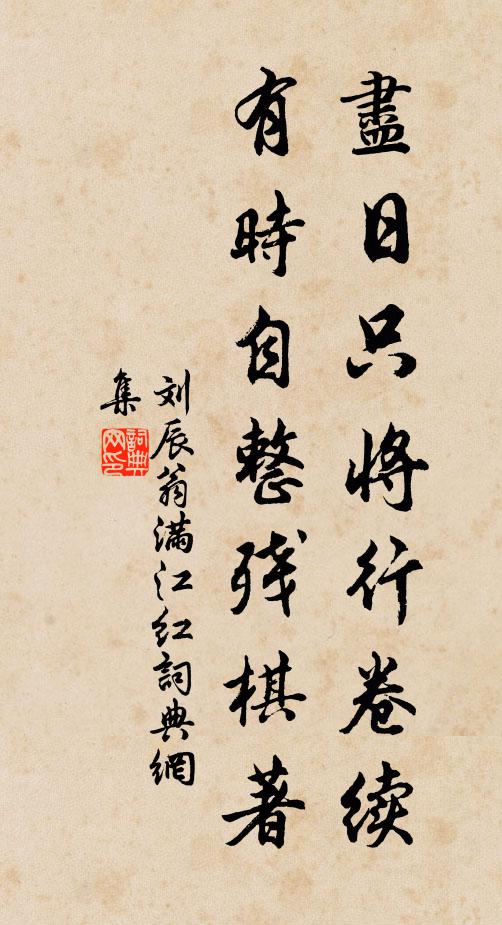 盡日只将行卷续
有時自整残棋著
刘辰翁满江红詞典網
集
詞典网印